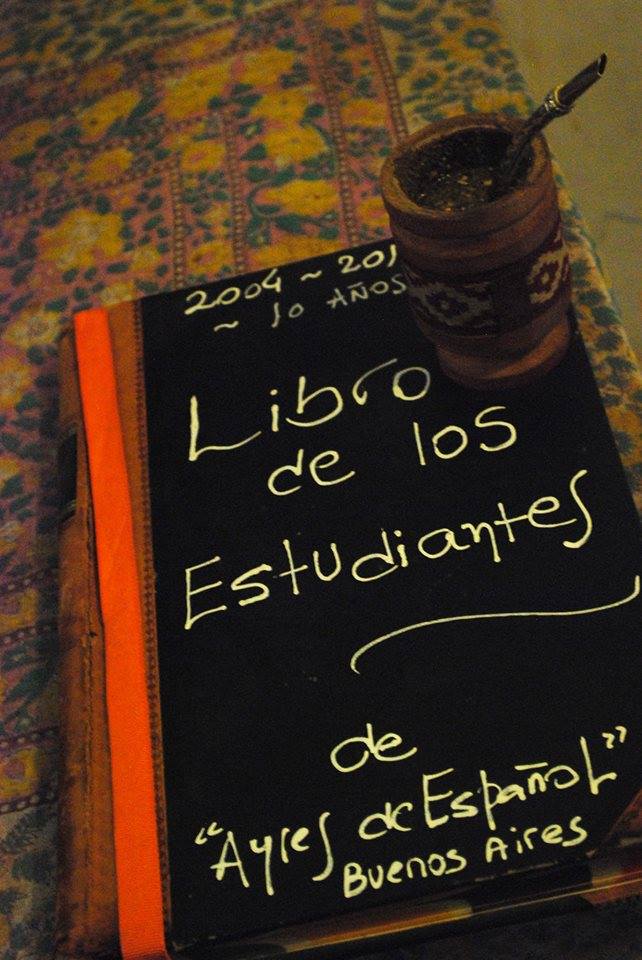 2004 ~ 201
~ 10 AÑOS
Libro
de los
Estudiantes
de
"Ayres de Español"
Buenos Aires